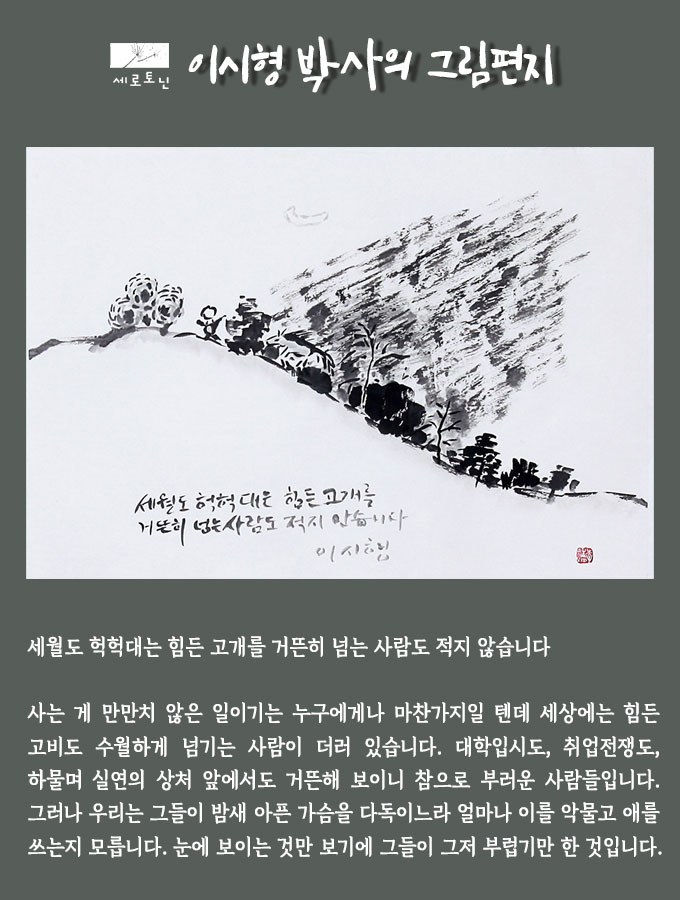 세로토닌
이시형 박사의 그림편지
세월도 헉헉대는 힘든 고개를
거뜬히 넘는 사람도 적지 않습니다
이시형
세월도 헉헉대는 힘든 고개를 거뜬히 넘는 사람도 적지 않습니다
사는 게 만만치 않은 일이기는 누구에게나 마찬가지일 텐데 세상에는 힘든
고비도 수월하게 넘기는 사람이 더러 있습니다. 대학입시도, 취업전쟁도,
하물며 실연의 상처 앞에서도 거뜬해 보이니 참으로 부러운 사람들입니다.
그러나 우리는 그들이 밤새 아픈 가슴을 다독이느라 얼마나 이를 악물고 애를
쓰는지 모릅니다. 눈에 보이는 것만 보기에 그들이 그저 부럽기만 한 것입니다.